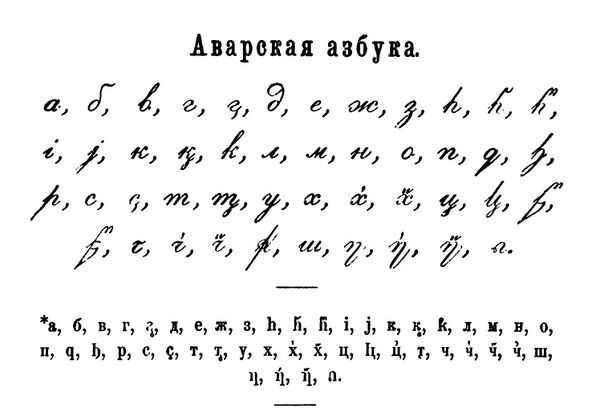 Аварская азбука.
а, б, в, г, ӷ, д, е, ж, з, һ, һ̄, һ̃,
і, ј, к, қ, k, л, м, н, о, п, q, ђ,
р, с, ҫ, т, ҭ, у, х, х̓, х̆, ц, ц,
ч, ч̓, ч̆, ш, ƞ, ƞ̓, ƞ̆, ᴖ.
*а, б, в, г, ӷ, д, е, ж, з, һ, һ̄, һ̃, і, ј, к, қ, k, л, м, н, о,
п, q, ђ, р, с, ҫ, т, ҭ, у, х, х̓, х̆, ц, ц̓, ч, ч̓, ч̆, ш,
ƞ, ƞ̓, ƞ̆, ᴖ.